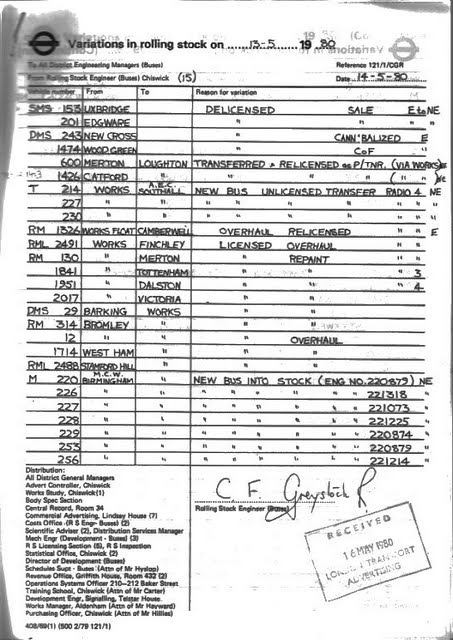 Variations in rolling stock on 13-5 1980
To All District Engineering Managers (Buses) Reference 121/1/CGR
From Rolling Stock Engineer (Buses) Chiswick (15) Date 14-5-80
Vehicle number From To Reason for variation
SMS 153 UXBRIDGE DELICENSED SALE E to NE
201 EDGWARE " " "
DMS 243 NEW CROSS " CANN'BALIZED E
1474 WOOD GREEN " CoF
600 MERTON LOUGHTON TRANSFERRED & RELICENSED as P/TNR. (VIA WORKS) NE
1426 CATFORD " " " " ( " ) NE
T 214 WORKS A.E.C. SOUTHALL NEW BUS UNLICENSED TRANSFER RADIO 4 NE
227 " " " " " " "
230 " " " " " " "
RM 1326 WORKS FLOAT CAMBERWELL OVERHAUL RELICENSED " E
RML 2491 WORKS FINCHLEY LICENSED OVERHAUL "
RM 130 " MERTON " REPAINT "
1841 " TOTTENHAM " " " 3
1951 " DALSTON " " " 4
2017 " VICTORIA " "
DMS 29 BARKING WORKS " "
RM 314 BROMLEY " " "
12 " " " OVERHAUL
1714 WEST HAM " " "
RML 2488 STAMFORD HILL " " "
M 220 M.C.W. BIRMINGHAM NEW BUS INTO STOCK (ENG NO. 220879) NE
226 " " " " " " " 221318 "
227 " " " " " " " 221073 "
228 " " " " " " " 221225 "
229 " " " " " " " 220874 "
253 " " " " " " " 220879 "
256 " " " " " " " 221214 "
Distribution:
All District General Managers
Advert Controller, Chiswick
Works Study, Chiswick (1)
Body Spec Section
Central Record, Room 34
Commercial Advertising, Lindsay House (7)
Costs Office (R S Engr- Buses) (2)
Scientific Adviser (2), Distribution Services Manager
Mech Engr (Development - Buses) (3)
R S Licensing Section (5), R S Inspection
Statistical Office, Chiswick (2)
Director of Development (Buses)
Schedules Supt - Buses (Attn of Mr Hyslop)
Revenue Office, Griffith House, Room 432 (2)
Operations Systems Officer 210-212 Baker Street
Training School, Chiswick (Attn of Mr Carter)
Development Engr, Signalling, Telstar House
Works Manager, Aldenham (Attn of Mr Hayward)
Purchasing Officer, Chiswick (Attn of Mr Hillies)
408/69(1) (500 2/79 121/1)
C. F. Greystock
Rolling Stock Engineer (Buses)
RECEIVED
16 MAY 1980
LONDON TRANSPORT
ADVERTISING